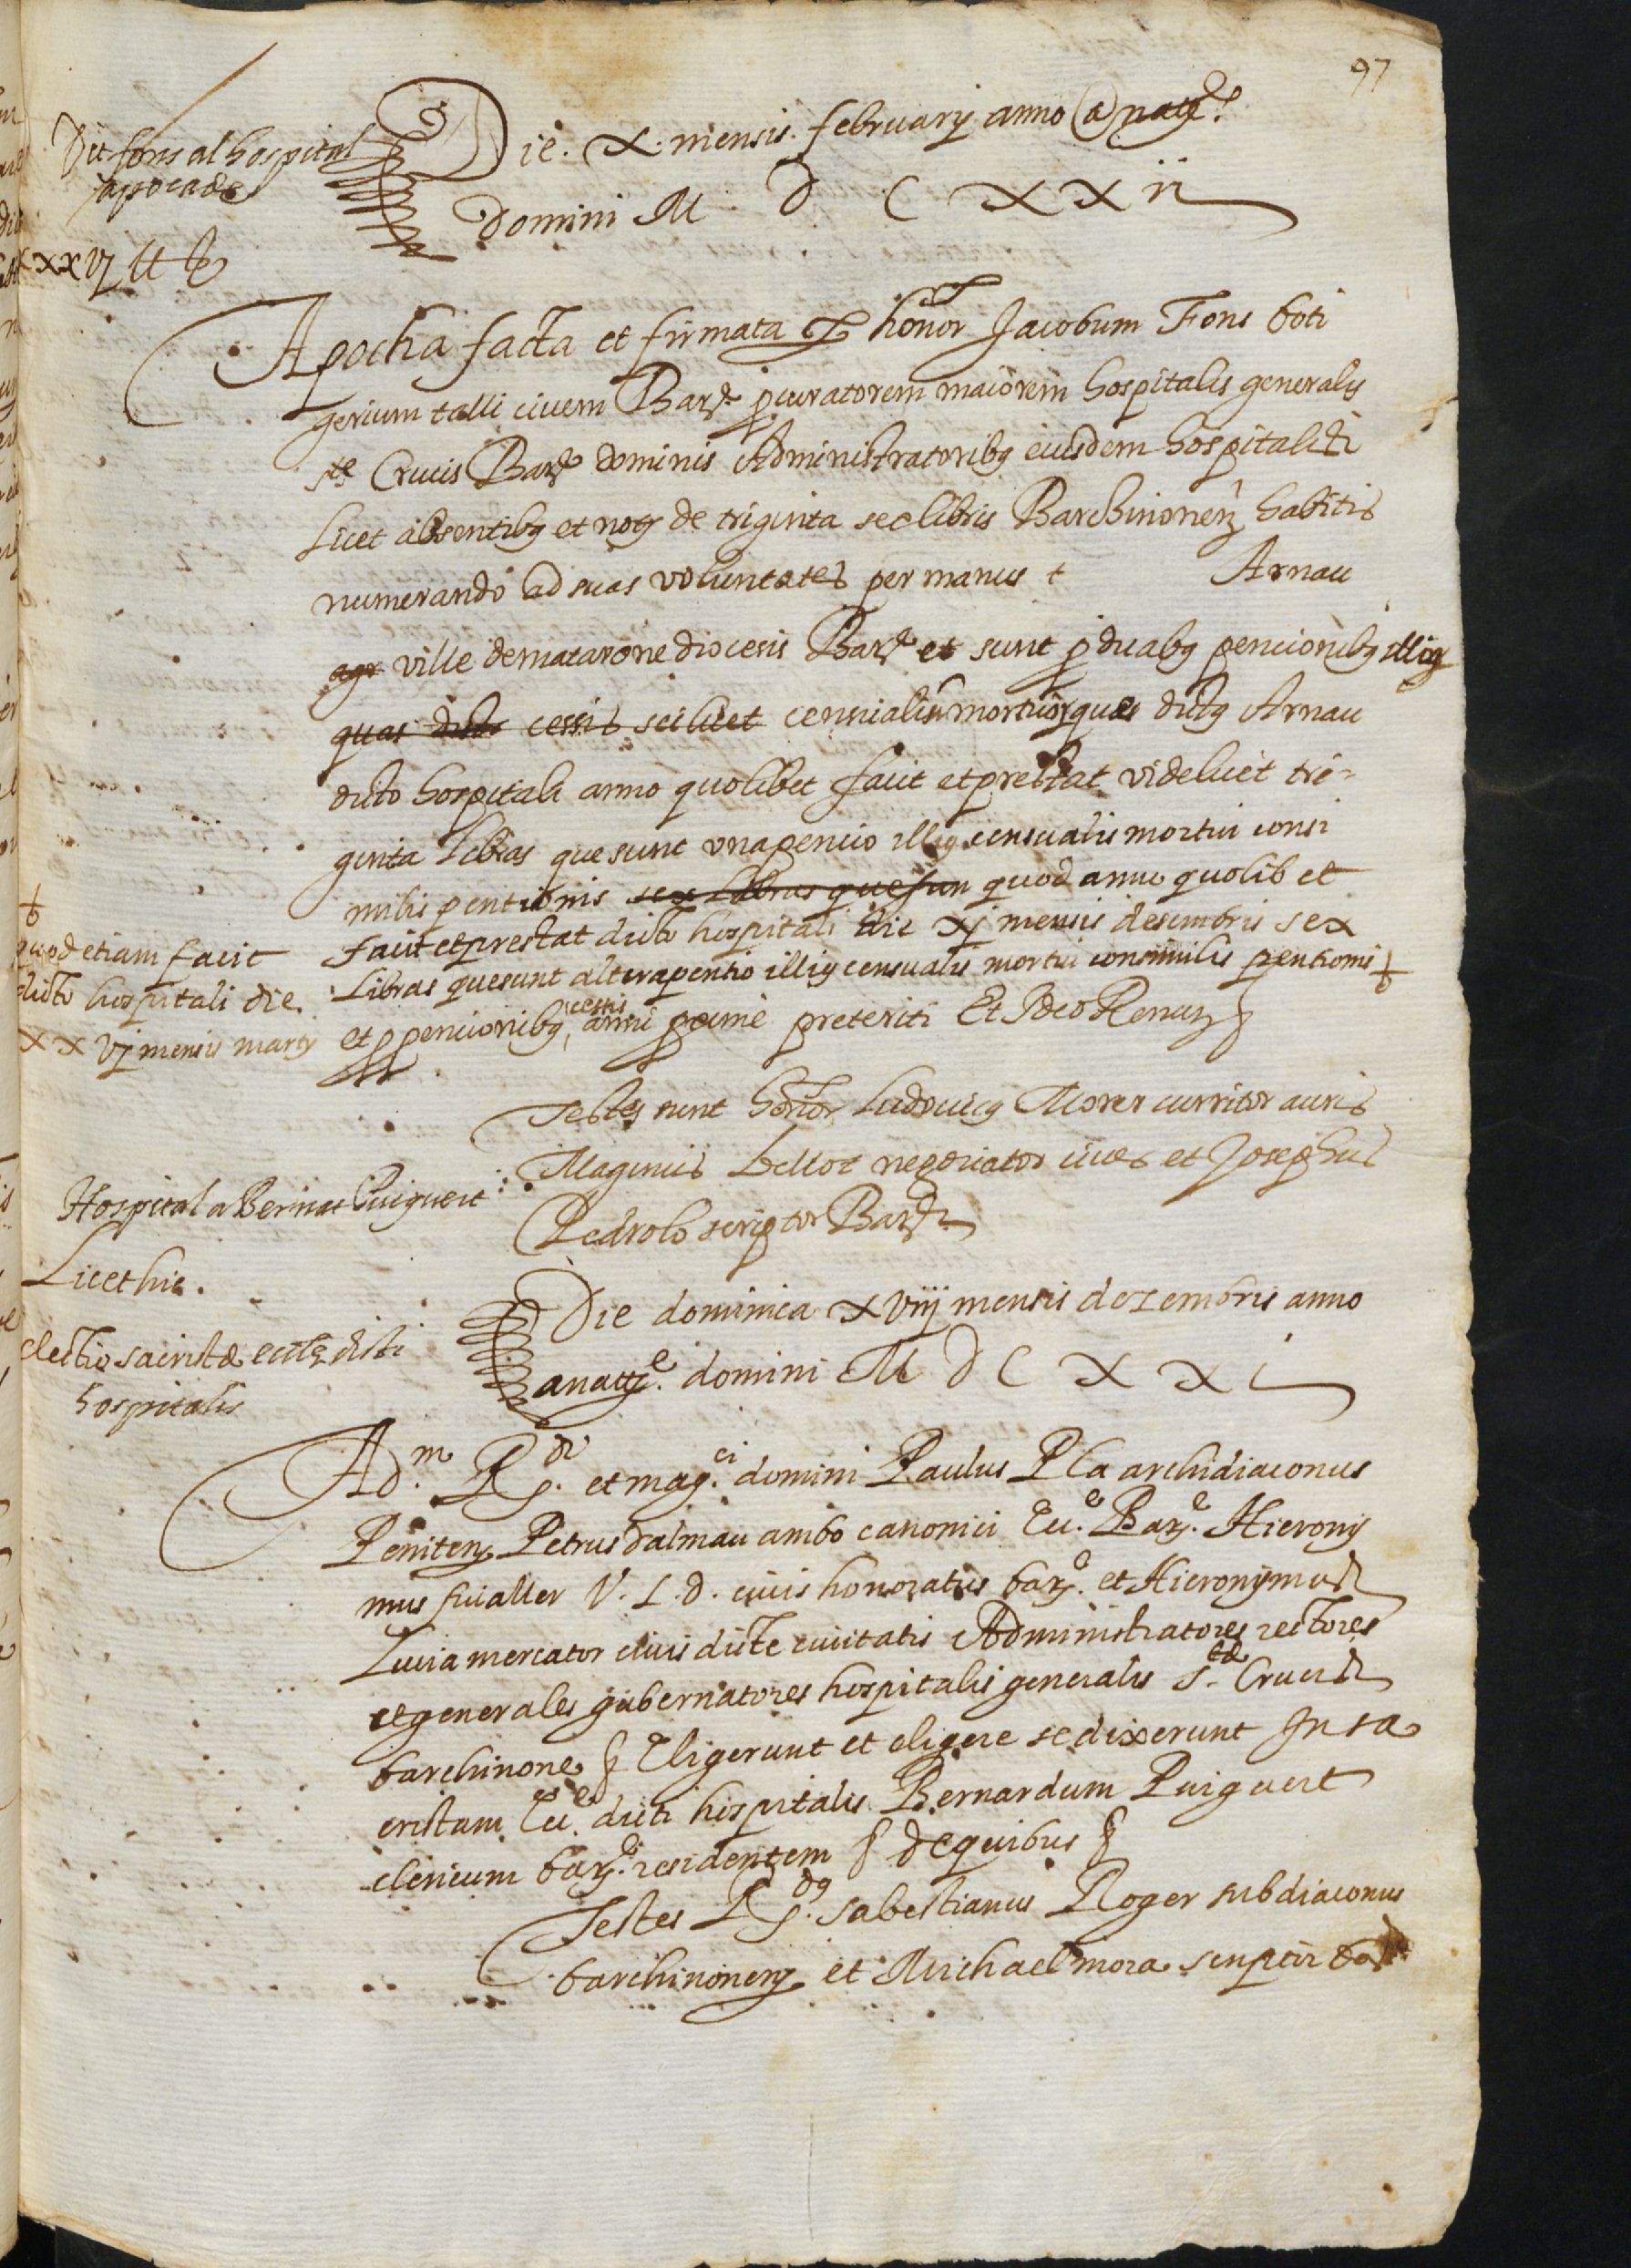 97
Dit fons al hospital
apoca de
xxvj ll b
Die. X. mensis. februarij anno a nat.e
Domini M. D C XX ii
Apocha facta et firmata per honor Jacobum Fons boti
gerium talli civem Barne procuratorem maiorem hospitalis generalis
ste Crucis Barne dominis Administratoribus eiusdem hospitalis
Licet absentibus et notario de triginta sex libris Barchinonens habitis
numerando ad suas voluntates per manus + Arnau
agr ville de matarone diocesis Barne et sunt pro duabus pencionibus illius
quas dicto cessis scilicet censualium mortuorum quas dictus Arnau
dicto hospitali anno quolibet facit et prestat videlicet tri=
ginta libras que sunt una pencio illius censualis mortui consi
milis pentionis sex libras que sun quod anno quolibet
facit et prestat dicto hospitali die xj mensis desembris sex
Libras que sunt altera pentio illius censualis mortui consimilis pentionis +
et pro pencionibus cessis anni proxime preteriti Et Ideo Renun
+
quod etiam facit
dicto hospitali die
xxvj mensis martij
Testes sunt honor Ludovicus Morer curritor auris
Maginus Bellot negociator cives et Josephus
Pedrolo scriptor Barne
Hospital a Bernat Puigvert
Licet hic.
electio sacristæ eccle dicti
hospitalis
Die dominica xviiij mensis dezembris anno
a nat.e domini M D C X X i
Ad.m R.di et mag.ci domini Paulus Pla archidiaconus
Peniten Petrus dalmau ambo canonici Ecc.e Bar.e Hierony
mus fivaller V. J. d. civis honoratus bar.e et Hieronymus
Lucia mercator civis dicte civitatis Administratores rectores
et generales gubernatores hospitalis generalis S.te Crucis
barchinone § Eligerunt et eligere se dixerunt In sa
cristam Ecc.e dicti hospitalis Bernardum Puigvert
clericum bar.e residentem § de quibus §
Testes R.dus sabestianus Roger subdiaconus
barchinonens et Michael mora scriptor bar